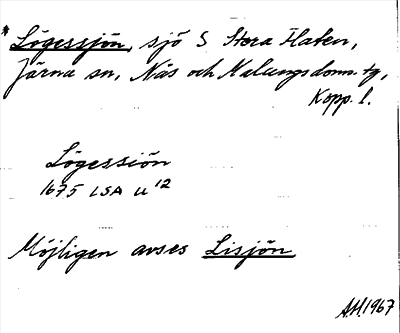 * Lögessjön, sjö S Stora Flaten,
Järna sn, Näs och Malungs doms. tg,
Kopp. l.
Lögessiön
1675 LSA U 12
Möjligen avses Lisjön
A.H. 1967